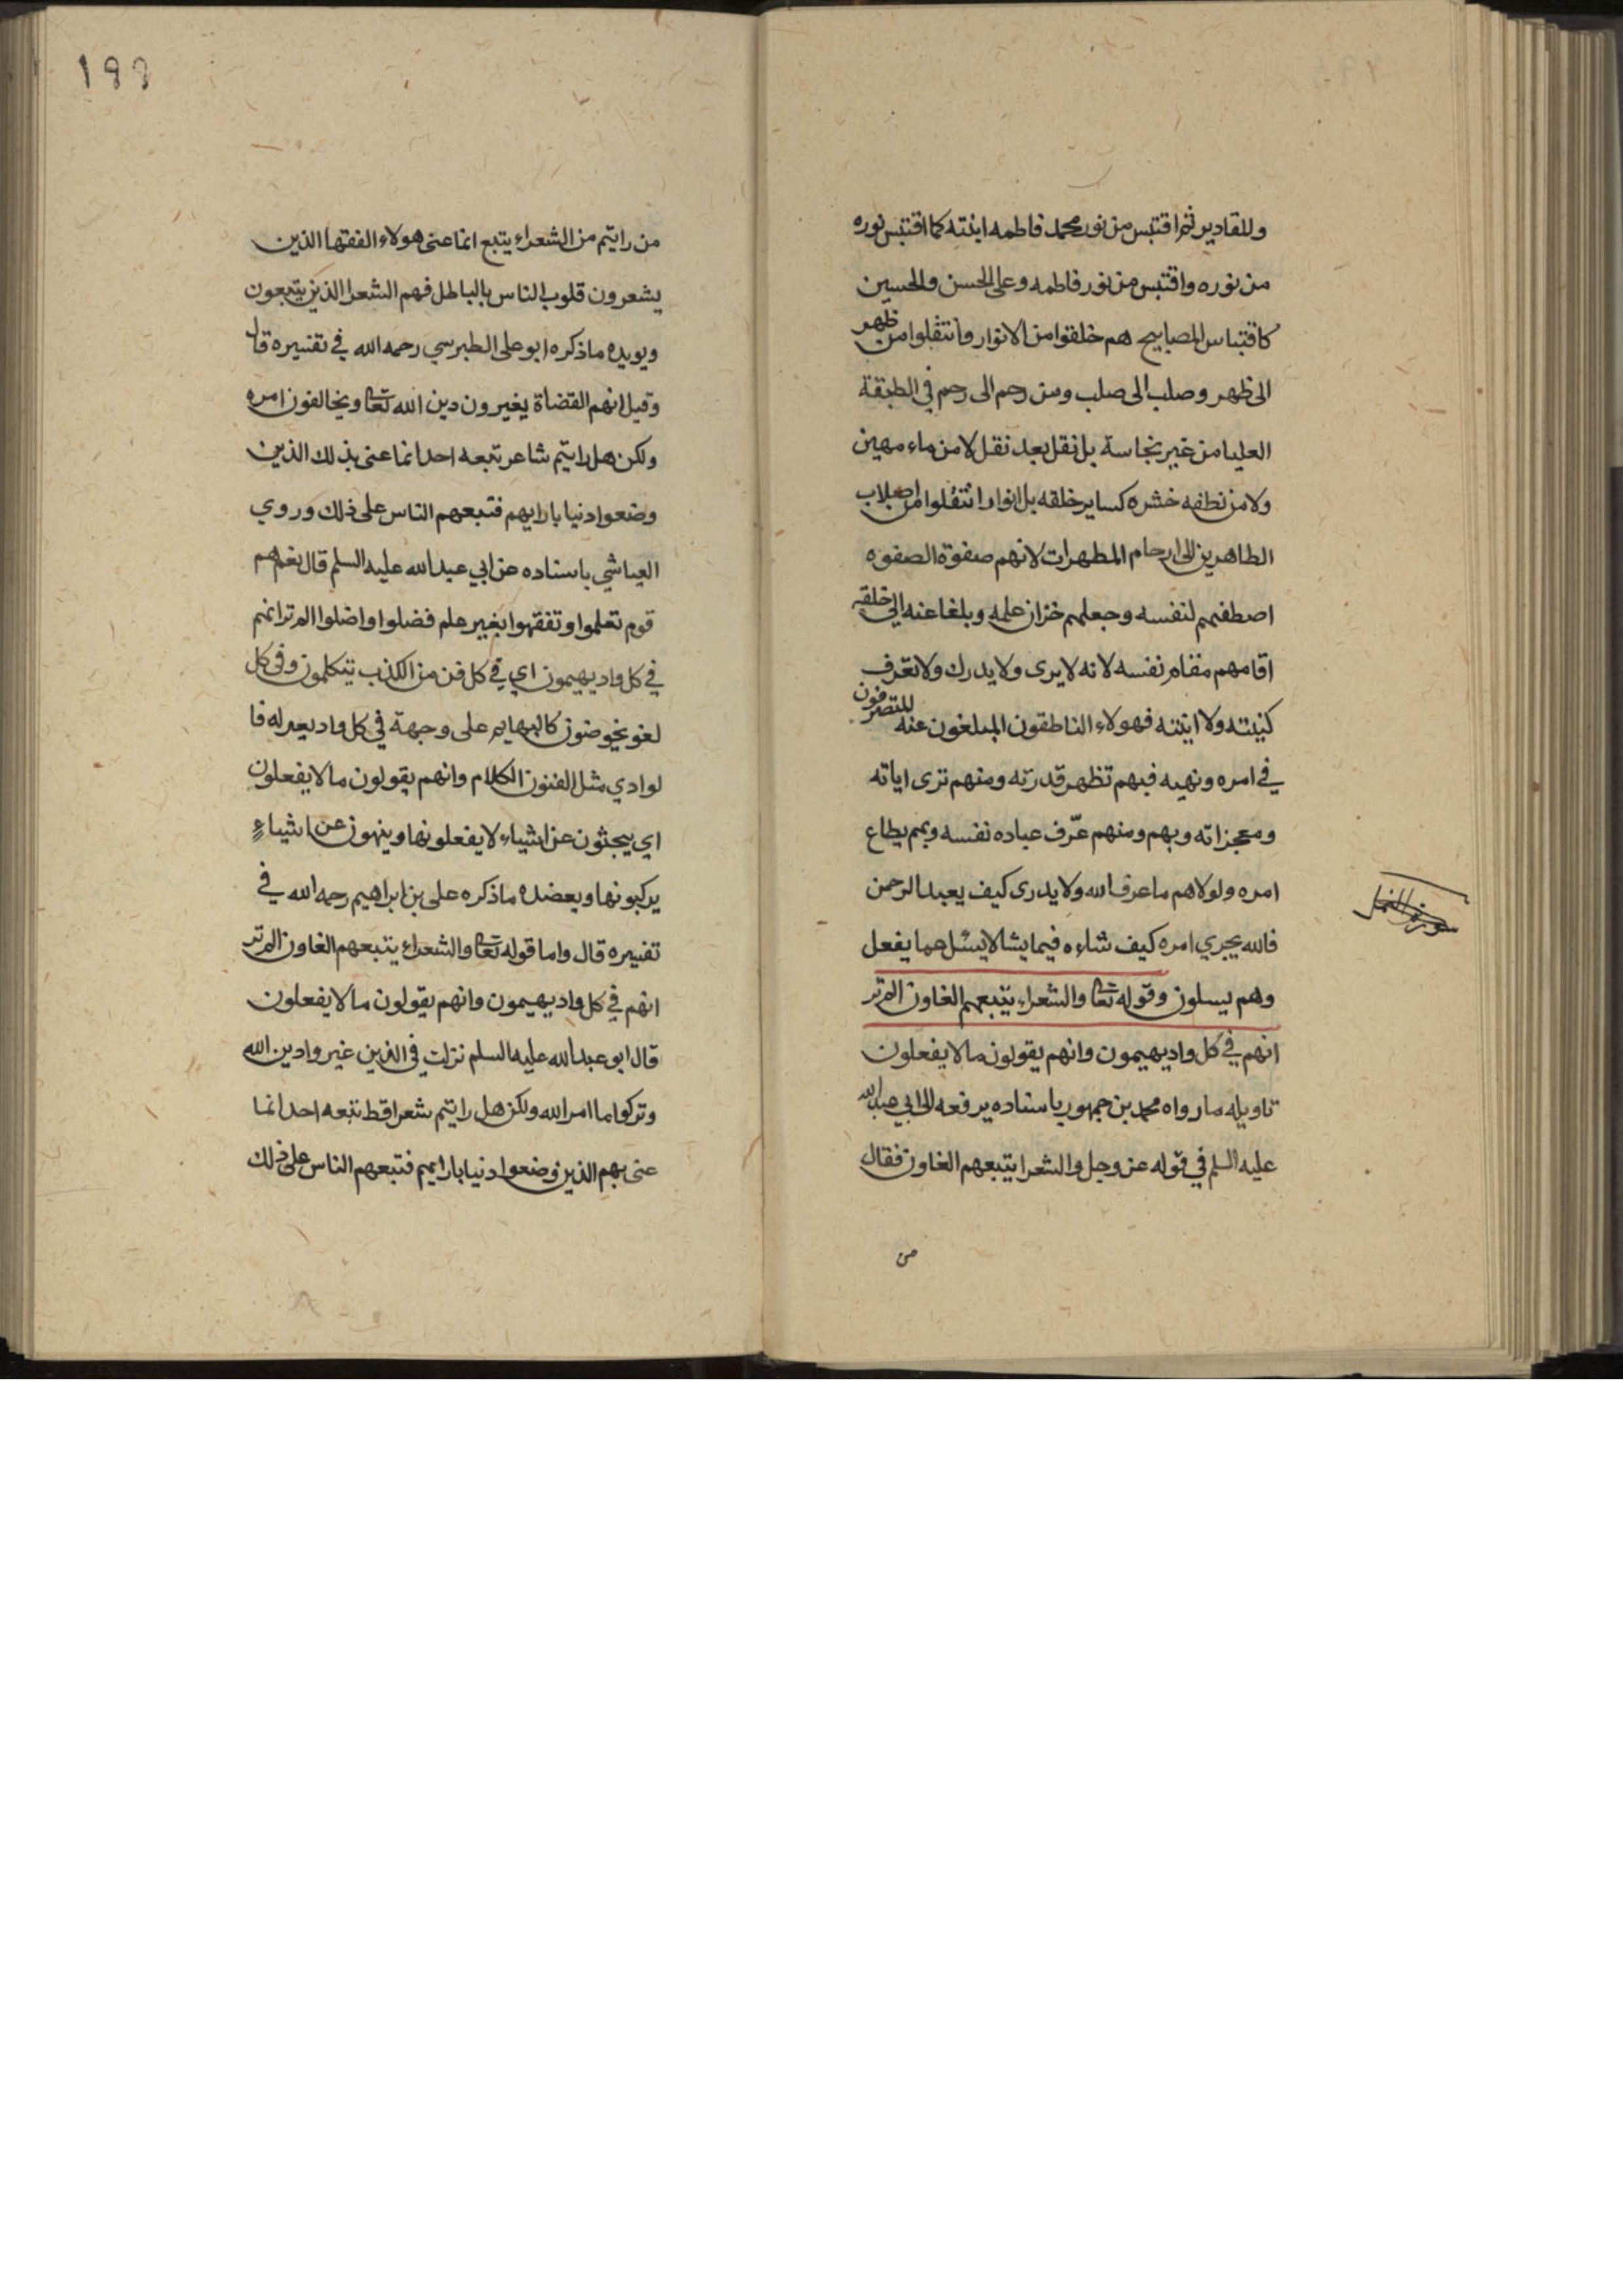 وللقادير ثم اقتبس من نور محمد فاطمه ابنته كما اقتبس نوره
من نوره واقتبس من نور فاطمه وعلى الحسن والحسين
كاقتباس المصابيح هم خلقوا من الانوار وانتقلوا من ظهر
الى ظهر وصلب الى صلب ومن رحم الى رحم في الطبقة
العليا من غير نجاسة بل نقل بعد نقل لا من ماء مهين
ولا من نطفه خشره كساير خلقه بل انوار انتقلوا من اصلاب
الطاهرين الى ارحام المطهرات لانهم صفوة الصفوه
اصطفهم لنفسه وجعلهم خزان علمه وبلغا عنه الى خلقه
اقامهم مقام نفسه لانه لا يرى ولا يدرك ولا تعرف
كنيته ولا انيته فهولاء الناطقون المبلغون عنه المتصرفون
في امره ونهيه فبهم تظهر قدرته ومنهم ترى اياته
ومعجزاته وبهم ومنهم عرّف عباده نفسه وبهم يطاع
امره ولولاهم ما عرف الله ولا يدرى كيف يعبد الرحمن
فالله يجري امره كيف شاءه فيما يشا لا يسئل عما يفعل
وهم يسلون وقوله تعا والشعراء يتبعهم الغاون الم تر
انهم في كل واد يهيمون وانهم يقولون ما لا يفعلون
تاويله ما رواه محمد بن جمهور باسناده يرفعه الى ابي عبد الله
عليه السلم في قوله عز وجل والشعرا يتبعهم الغاون فقال
من
سورة النمل
١٩٩
من رايتم من الشعراء يتبع انما عنى هولاء الفقها الذين
يشعرون قلوب الناس بالباطل فهم الشعرا الذين يتبعون
ويويده ما ذكره ابو على الطبرسي رحمه الله في تفسيره قال
وقيل انهم القضاة يغيرون دين الله تعا ويخالفون امره
ولكن هل رايتم شاعر تبعه احد انما عنى بذلك الذين
وضعوا دنيا بارايهم فتبعهم الناس على ذلك وروي
العياشي باسناده عن ابي عبد الله عليه السلم قال نعم هم
قوم تعلموا وتفقهوا بغير علم فضلوا واضلوا الم تر انهم
في كل واد يهيمون اي في كل فن من الكذب يتكلمون وفي كل
لغو يخوضون كالبهايم على وجهة في كل واد يعر له فا
لوادي مثل الفنون الكلام وانهم يقولون ما لا يفعلون
اي يحثون عن اشياء لا يفعلونها وينهون عن اشياءٍ
يركبونها ويعضده ما ذكره على بن ابراهيم رحمه الله في
تفسيره قال واما قوله تعا والشعراء يتبعهم الغاون الم تر
انهم في كل واد يهيمون وانهم يقولون ما لا يفعلون
قال ابو عبد الله عليه السلم نزلت في الذين غيروا دين الله
وتركوا ما امر الله ولكن هل رايتم شعرا قط تبعه احد انما
عنى بهم الذين وضعوا دنيا بارايهم فتبعهم الناس على ذلك